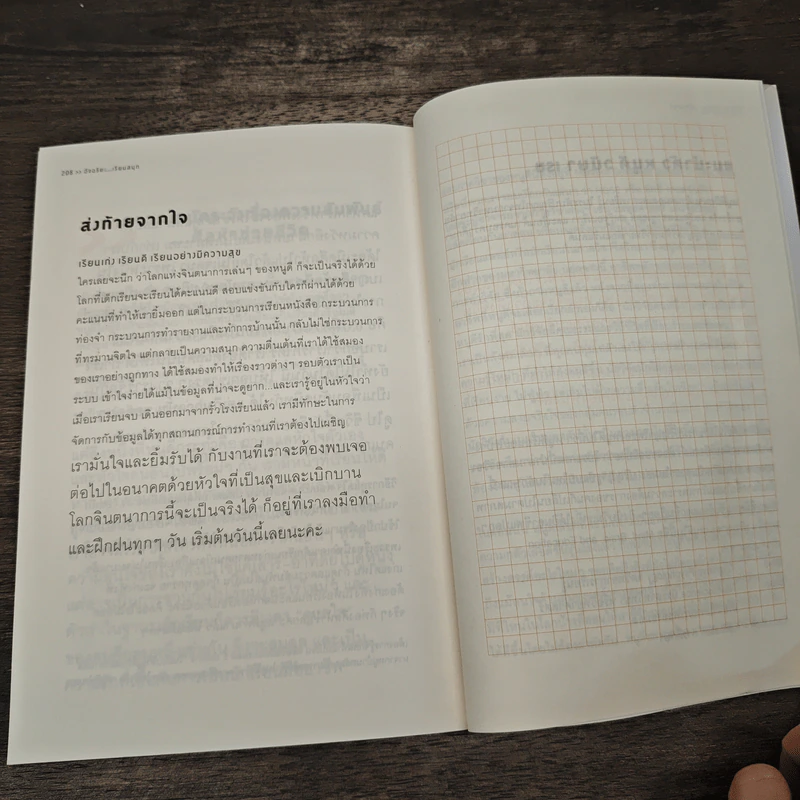 208 >> อัจฉริยะ...เรียนสนุก
ส่งท้ายจากใจ
เรียนเก่ง เรียนดี เรียนอย่างมีความสุข
ใครเลยจะนึก ว่าโลกแห่งจินตนาการเล่นๆ ของหนูดี ก็จะเป็นจริงได้ด้วย
โลกที่เด็กเรียนจะเรียนได้คะแนนดี สอบแข่งขันกับใครก็ผ่านได้ด้วย
คะแนนที่ทำให้เรายิ้มออก แต่ในกระบวนการเรียนหนังสือ กระบวนการ
ท่องจำ กระบวนการทำรายงานและทำการบ้านนั้น กลับไม่ใช่กระบวนการ
ที่ทรมานจิตใจ แต่กลายเป็นความสนุก ความตื่นเต้นที่เราได้ใช้สมอง
ของเราอย่างถูกทาง ได้ใช้สมองทำให้เรื่องราวต่างๆ รอบตัวเราเป็น
ระบบ เข้าใจง่ายได้แม้ในข้อมูลที่น่าจะดูยาก...และเรารู้อยู่ในหัวใจว่า
เมื่อเราเรียนจบ เดินออกมาจากรั้วโรงเรียนแล้ว เรามีทักษะในการ
จัดการกับข้อมูลได้ทุกสถานการณ์การทำงานที่เราต้องไปเผชิญ
เรามั่นใจและยิ้มรับได้ กับงานที่เราจะต้องพบเจอ
ต่อไปในอนาคตด้วยหัวใจที่เป็นสุขและเบิกบาน
โลกจินตนาการนี้จะเป็นจริงได้ ก็อยู่ที่เราลงมือทำ
และฝึกฝนทุกๆ วัน เริ่มต้นวันนี้เลยนะคะ